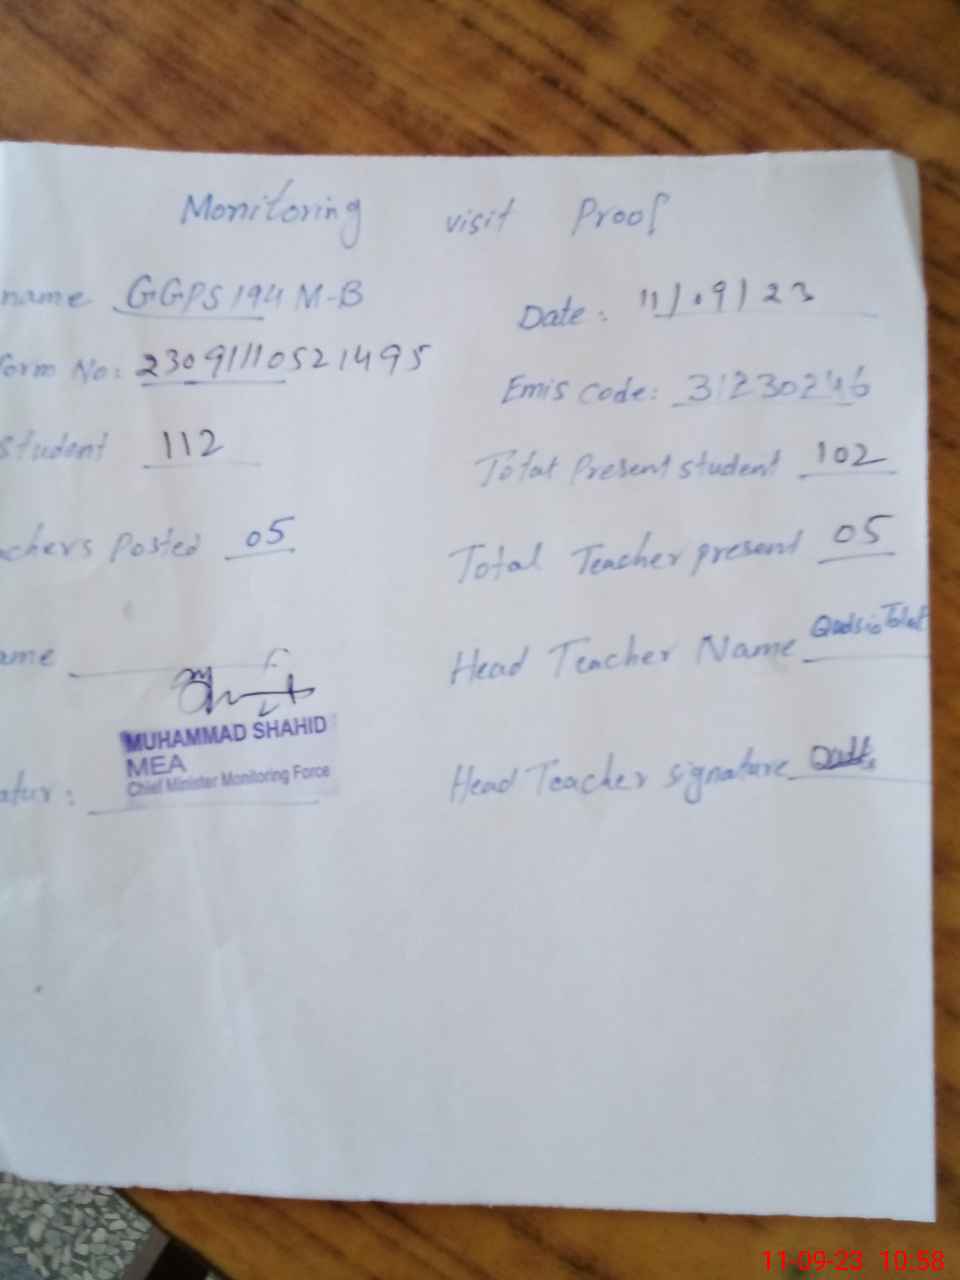 Monitoring visit Proof
name GGPS 194 M-B Date: 11/09/23
form No: 23091110521495 Emis code: 31230246
student 112 Total Present student 102
achers Posted 05 Total Teacher present 05
ame Head Teacher Name Qudsia Talat
MUHAMMAD SHAHID
MEA
Chief Minister Monitoring Force
atur: Head Teacher signature
11-09-23 10:58